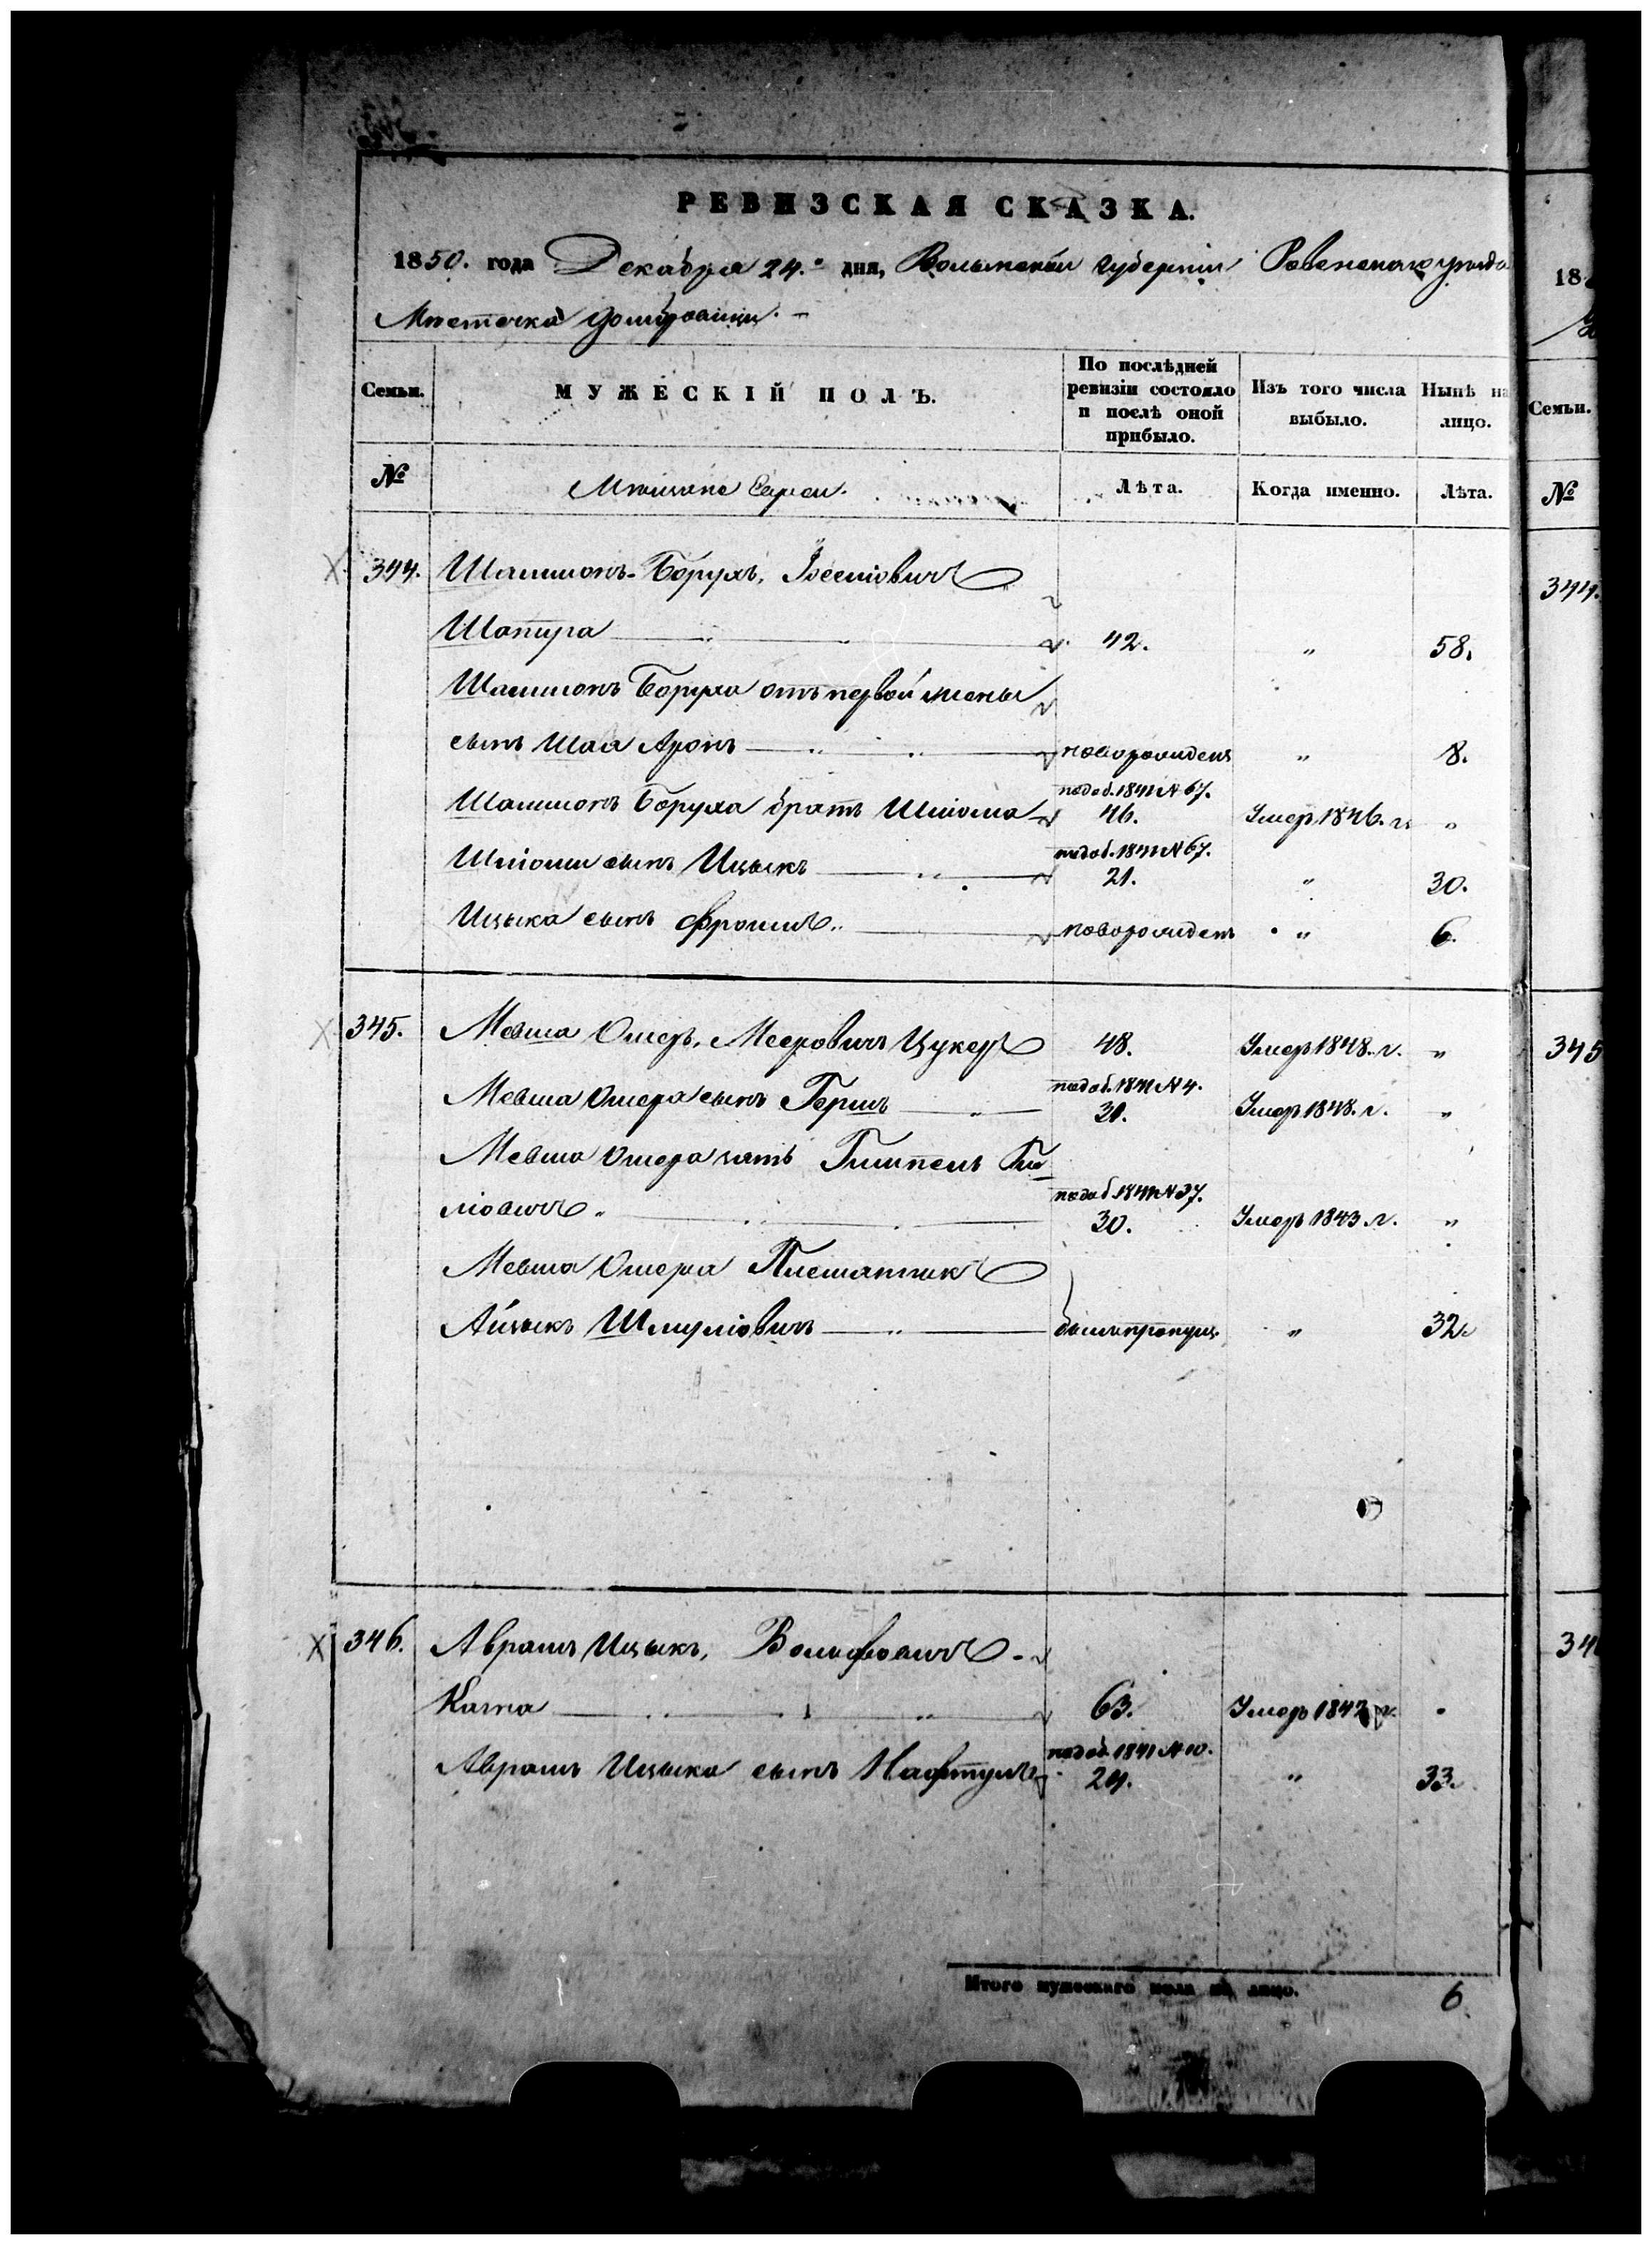 РЕВИЗСКАЯ СКАЗКА.
1850. года Декабря 24.го дня, Волынской Губерніи Ровенскаго уѣзда
Мѣстечка Домбровицы.
Семьи.
МУЖЕСКІЙ ПОЛЪ.
По послѣдней ревизіи состояло и послѣ оной прибыло.
Изъ того числа выбыло.
Нынѣ на лицо.
Семьи.
18
№
Мѣщане Евреи.
Лѣта.
Когда именно.
Лѣта.
№
344. Шамшонъ-Борухъ, Іосевіовичъ 344.
Шапира 42. " 58.
Шамшонъ Боруха отъ первой жены
сынъ Шая Аронъ новорожденъ " 8.
Шамшонъ Боруха братъ Шліома подоб. 1841 № 67. 46. Умеръ 1846. г. "
Шліомы сынъ Ицыкъ подоб. 1841 № 67. 21. " 30.
Ицыка сынъ Фроимъ новорожденъ " 6.
345. Мовша Омеръ, Мееровичъ Цукеръ 48. Умеръ 1848. г. " 345
Мовша Омера сынъ Гершъ подоб. 1841 № 4. 31. Умеръ 1848. г. "
Мовша Омера зять Гимпель
ліовичъ подоб. 1841 № 37. 30. Умеръ 1843. г. "
Мовша Омера Племянникъ
Айзыкъ Шмуліовичъ былъ пропущ. " 32.
346. Аврамъ Ицыкъ, Вольфовичъ 34
Кагна 63. Умеръ 184 г. "
Аврамъ Ицыка сынъ Нафтула подоб. 1841 № 10. 24. " 33.
Итого мужескаго пола на лицо. 6.